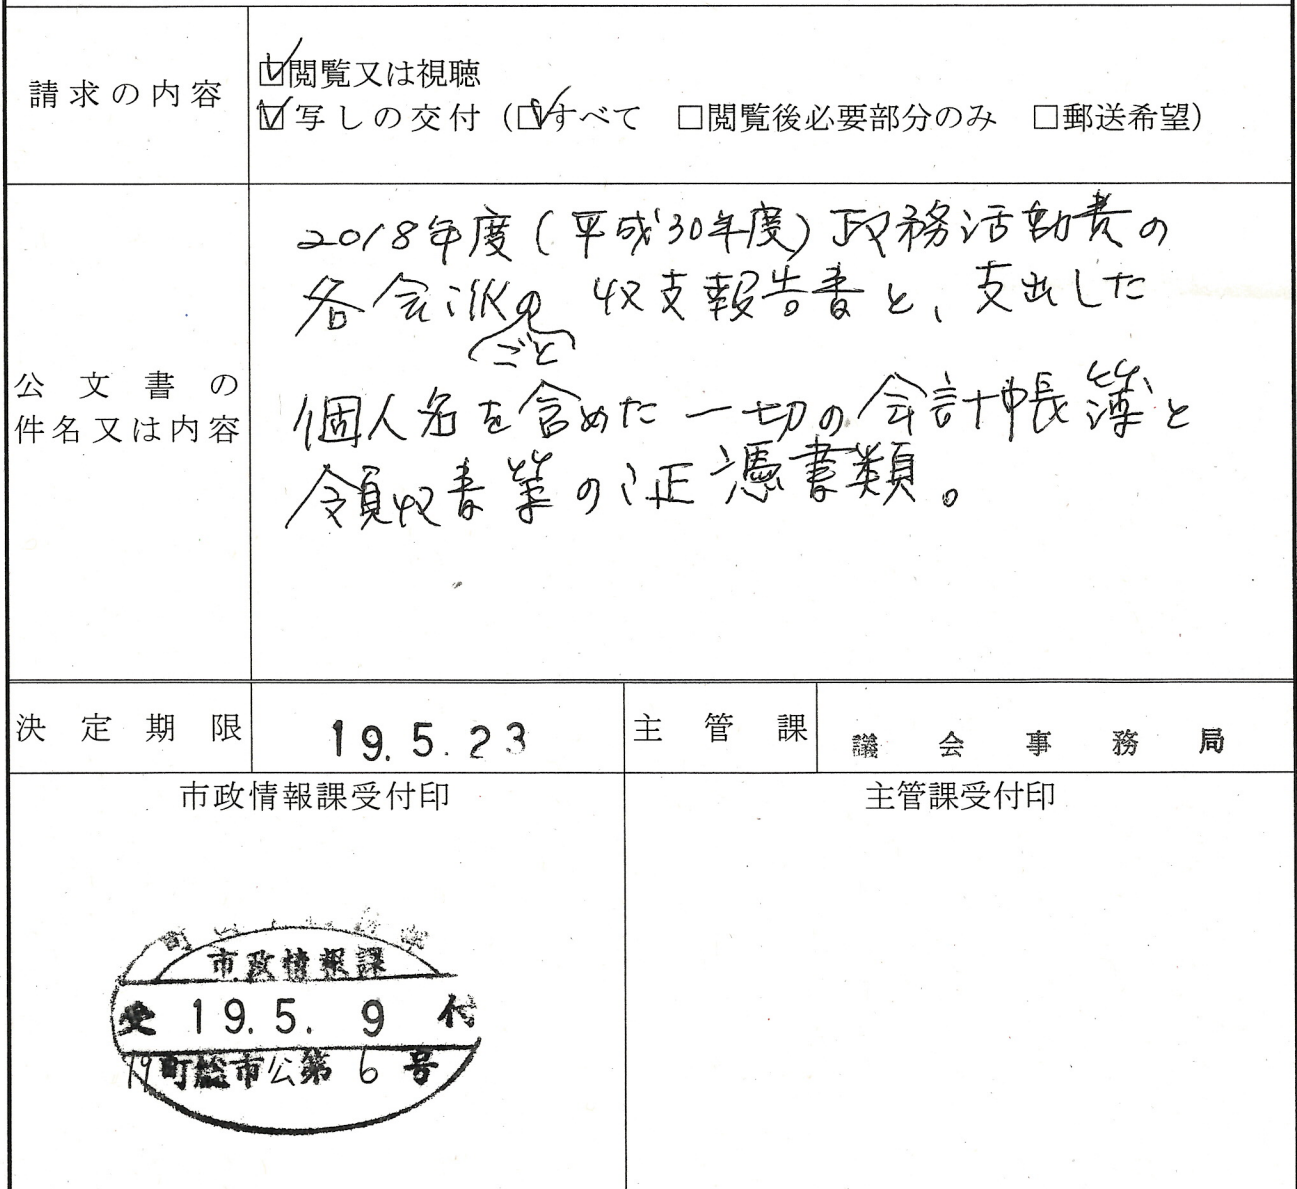 請求の内容
☑閲覧又は視聴
☑写しの交付(☑すべて □閲覧後必要部分のみ □郵送希望)
公文書の
件名又は内容
2018年度(平成30年度)政務活動費の
各会派の収支報告書と、支出した
(ごと)
個人名を含めた一切の会計帳簿と
領収書等の証憑書類。
決定期限
19.5.23
主管課
議会事務局
市政情報課受付印
主管課受付印
市政情報課
受 19.5.9 付
19町総市公第6号